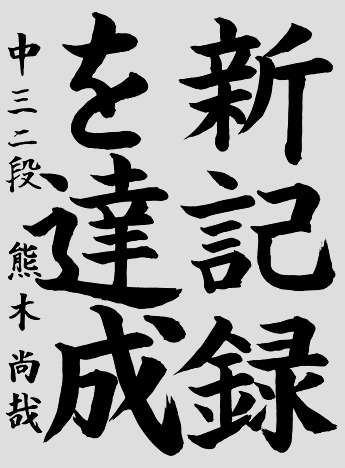 新記録
を達成
中三二段 熊木尚哉